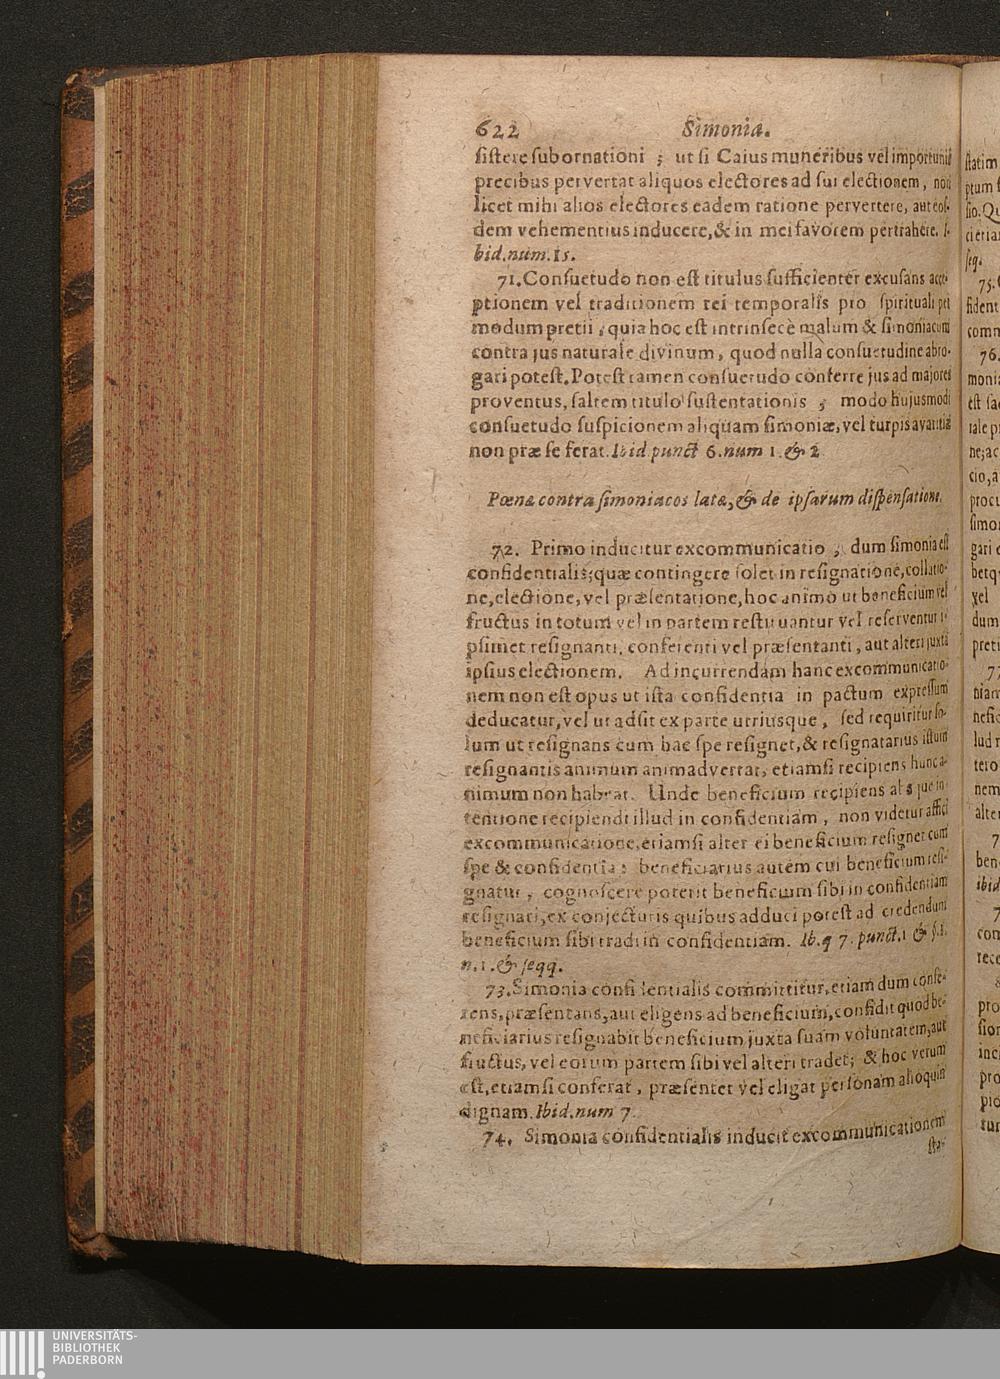 622 Simonia.
sistere subornationi ; ut si Caius muneribus vel importunis
precibus pervertat aliquos electores ad sui electionem, non
licet mihi alios electores eadem ratione pervertere, aut eos-
dem vehementius inducere, & in mei favorem pertrahere. I-
bid. num. 15.
71. Consuetudo non est titulus sufficienter excusans acce-
ptionem vel traditionem rei temporalis pro spirituali per
modum pretii ; quia hoc est intrinsecè malum & simoniacum
contra jus naturale divinum, quod nulla consuetudine abro-
gari potest. Potest tamen consuetudo conferre jus ad majores
proventus, saltem titulo sustentationis ; modo hujusmodi
consuetudo suspicionem aliquam simoniæ, vel turpis avaritiæ
non præ se ferat. Ibid punct 6. num 1. & 2
Pœnæ contra simoniacos latæ, & de ipsarum dispensatione.
72. Primo inducitur excommunicatio , dum simonia est
confidentialis; quæ contingere solet in resignatione, collatio-
ne, electione, vel præsentatione, hoc animo ut beneficium vel
fructus in totum vel in partem restituantur vel reserventur i-
psimet resignanti, conferenti vel præsentanti, aut alteri juxta
ipsius electionem. Ad incurrendam hanc excommunicatio-
nem non est opus ut ista confidentia in pactum expressum
deducatur, vel ut adsit ex parte utriusque , sed requiritur so-
lum ut resignans cum hac spe resignet, & resignatarius istum
resignantis animum animadvertat, etiamsi recipiens hunc a-
nimum non habeat. Unde beneficium recipiens absque in-
tentione recipiendi illud in confidentiam , non videtur affici
excommunicatione, etiamsi alter ei beneficium resignet cum
spe & confidentia : beneficiarius autem cui beneficium resi-
gnatur , cognoscere poterit beneficium sibi in confidentiam
resignari, ex conjecturis quibus adduci potest ad credendum
beneficium sibi tradi in confidentiam. Ib. q 7. punct. 1 & §. 1.
n. 1. & seqq.
73. Simonia confidentialis committitur, etiam dum confe-
rens, præsentans, aut eligens ad beneficium, confidit quod be-
neficiarius resignabit beneficium juxta suam voluntatem, aut
fructus, vel eorum partem sibi vel alteri tradet; & hoc verum
est, etiamsi conferat , præsentet vel eligat personam alioquin
dignam. Ibid. num 7.
74. Simonia confidentialis inducit excommunicationem
sta-
UNIVERSITÄTS-
BIBLIOTHEK
PADERBORN